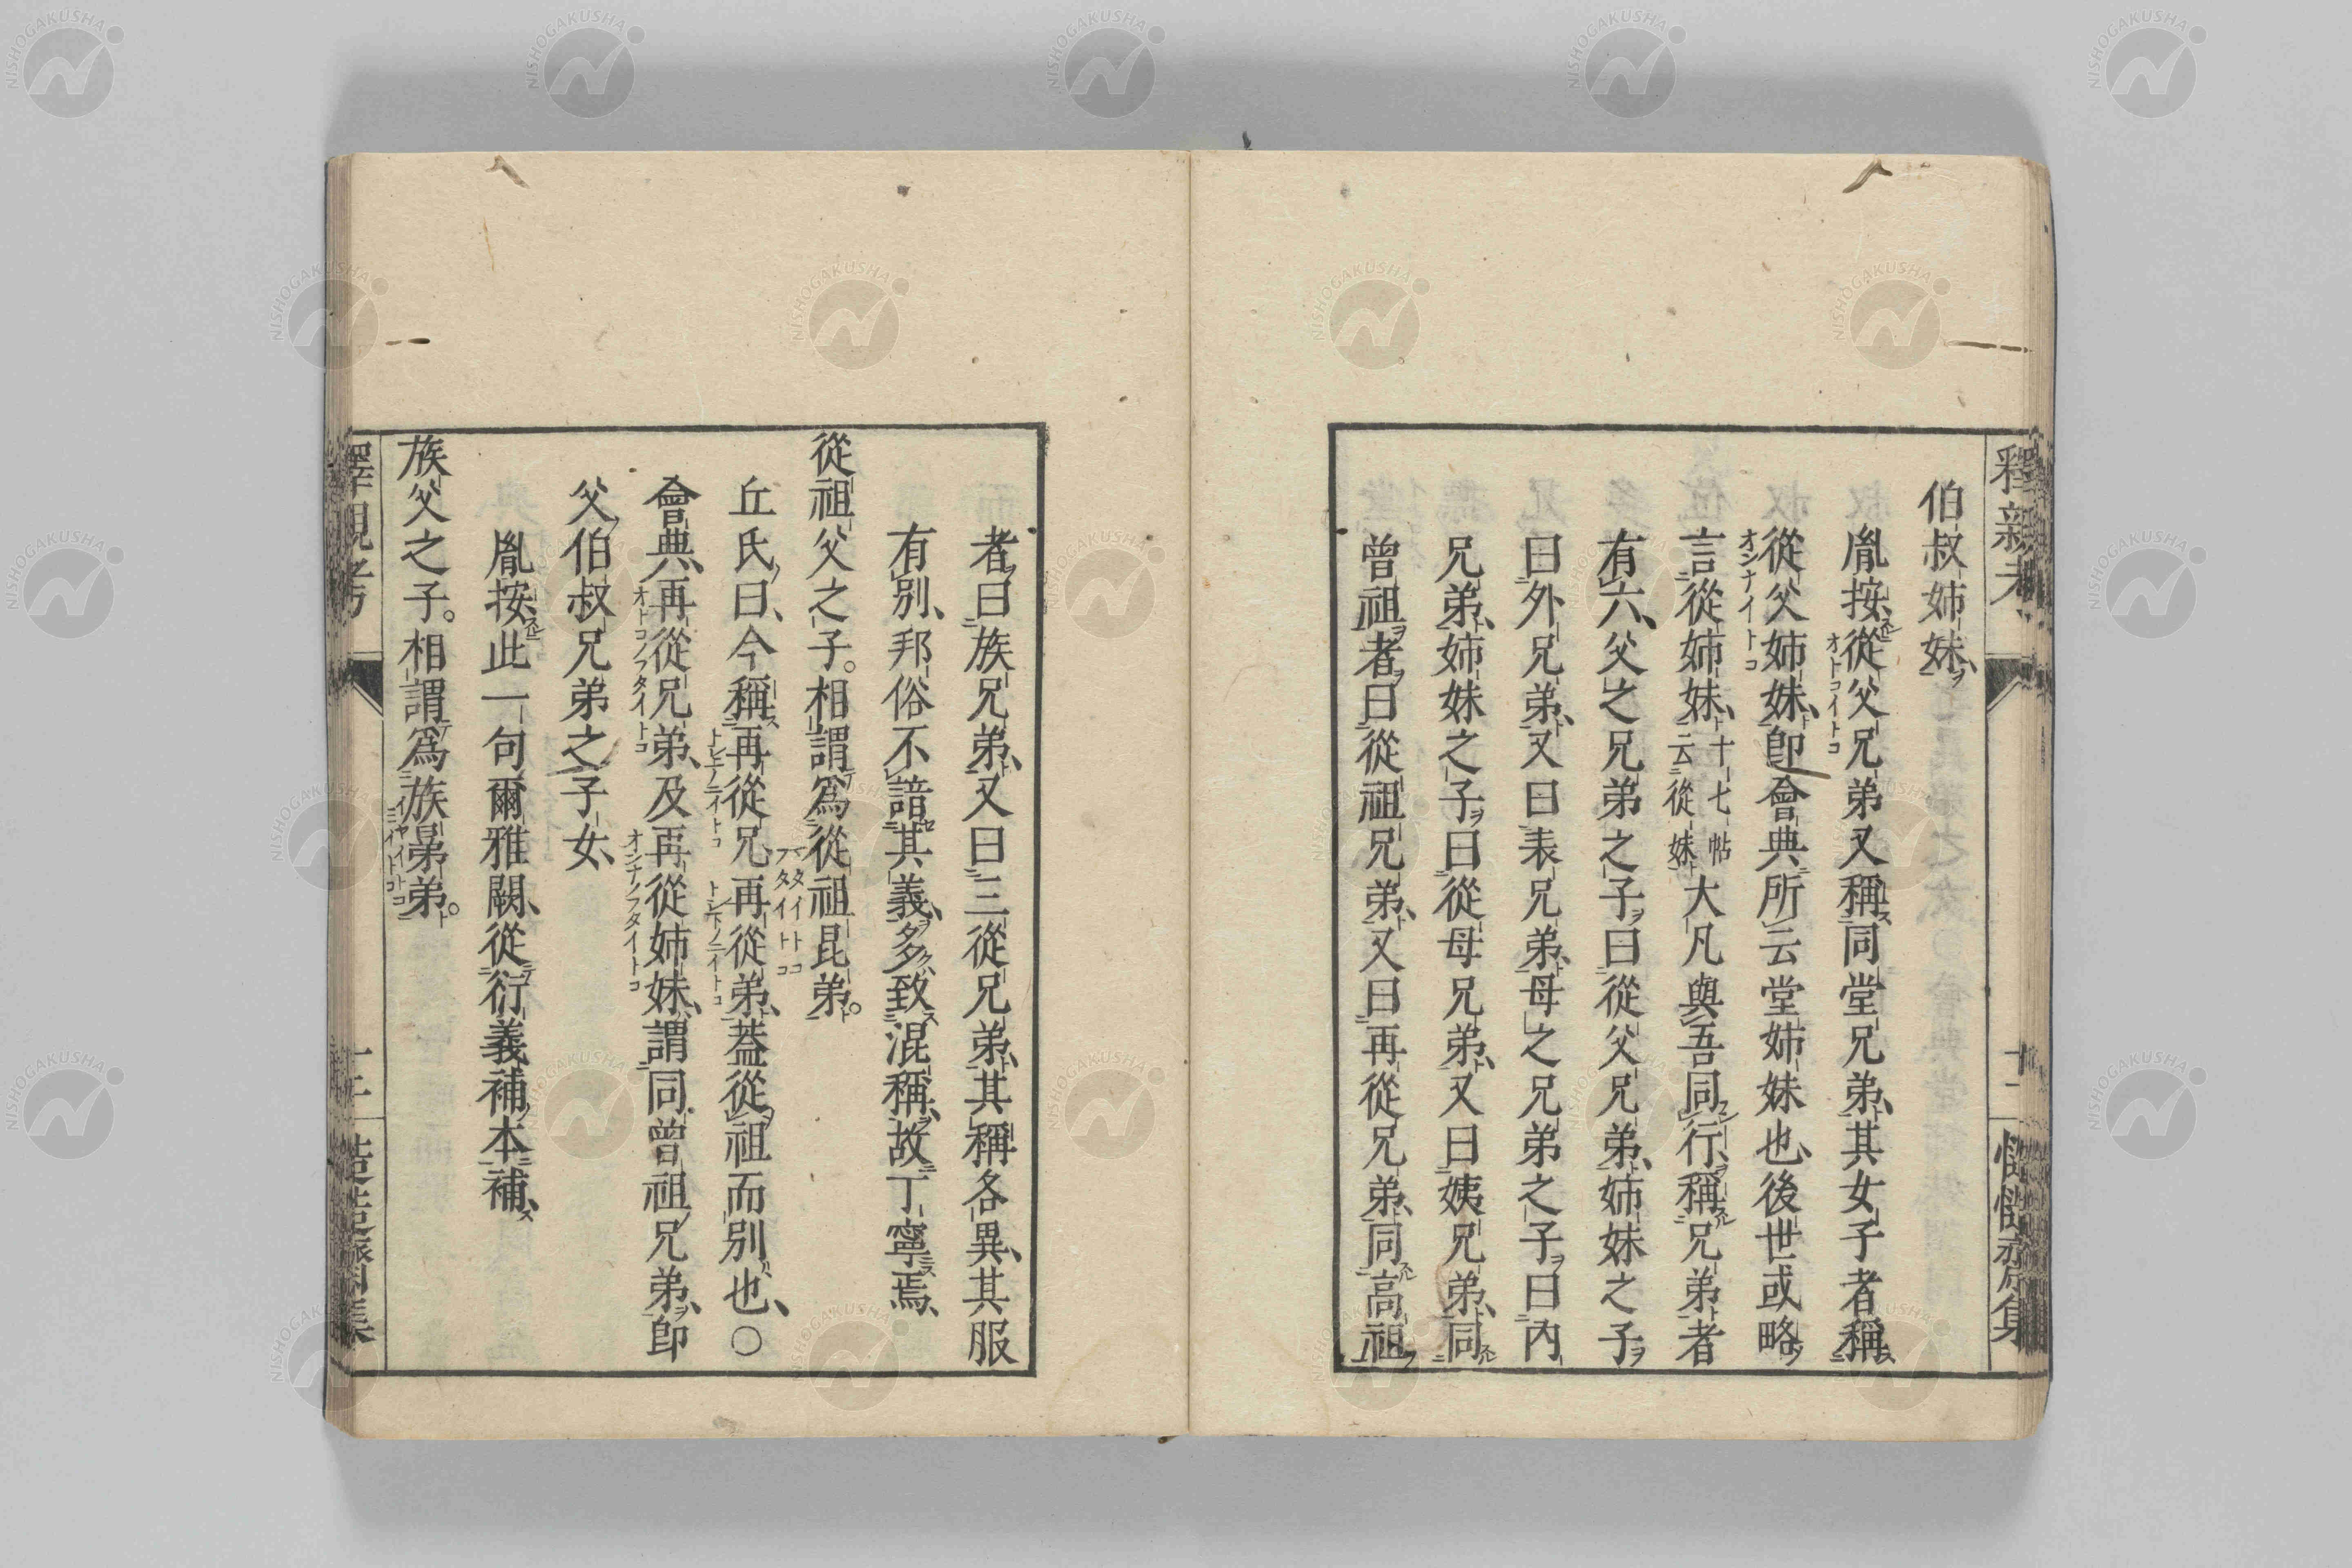 伯叔姉妹、
胤按、從父兄弟又稱同堂兄弟、其女子者稱
從父姉妹、即會典所云堂姉妹也、後世或略
言從姉妹、十七帖云從妹大凡與吾同行、稱兄弟者
有六、父之兄弟之子曰從父兄弟、姉妹之子
曰外兄弟、又曰表兄弟、母之兄弟之子曰内
兄弟、姉妹之子曰從母兄弟、又曰姨兄弟、同
曾祖者曰從祖兄弟、又曰再從兄弟、同高祖
者曰族兄弟、又曰三從兄弟、其稱各異、其服
有別、邦俗不諳其義、多致混稱、故丁寧焉、
從祖父之子。相謂爲從祖昆弟。
丘氏曰、今稱再從兄再從弟、蓋從祖而別也、〇
會典、再從兄弟、及再從姉妹、謂同曾祖兄弟、即
父伯叔兄弟之子女、
胤按此一句爾雅闕、從衍義補本補、
族父之子。相謂爲族晜弟。